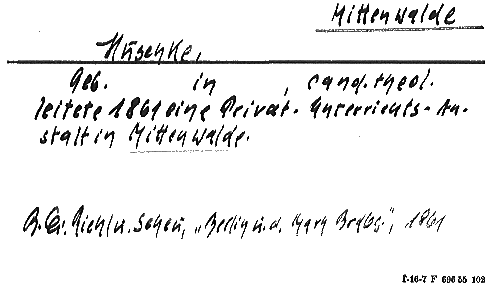 Mittenwalde
Huschke,
Geb. in , cand. theol.
leitete 1861 eine Privat-Unterrichts-An-
stalt in Mittenwalde.
Riehl u. Scheu, „Berlin u. d. Mark Brdbg.", 1861
f-16-7 F 696 55 102